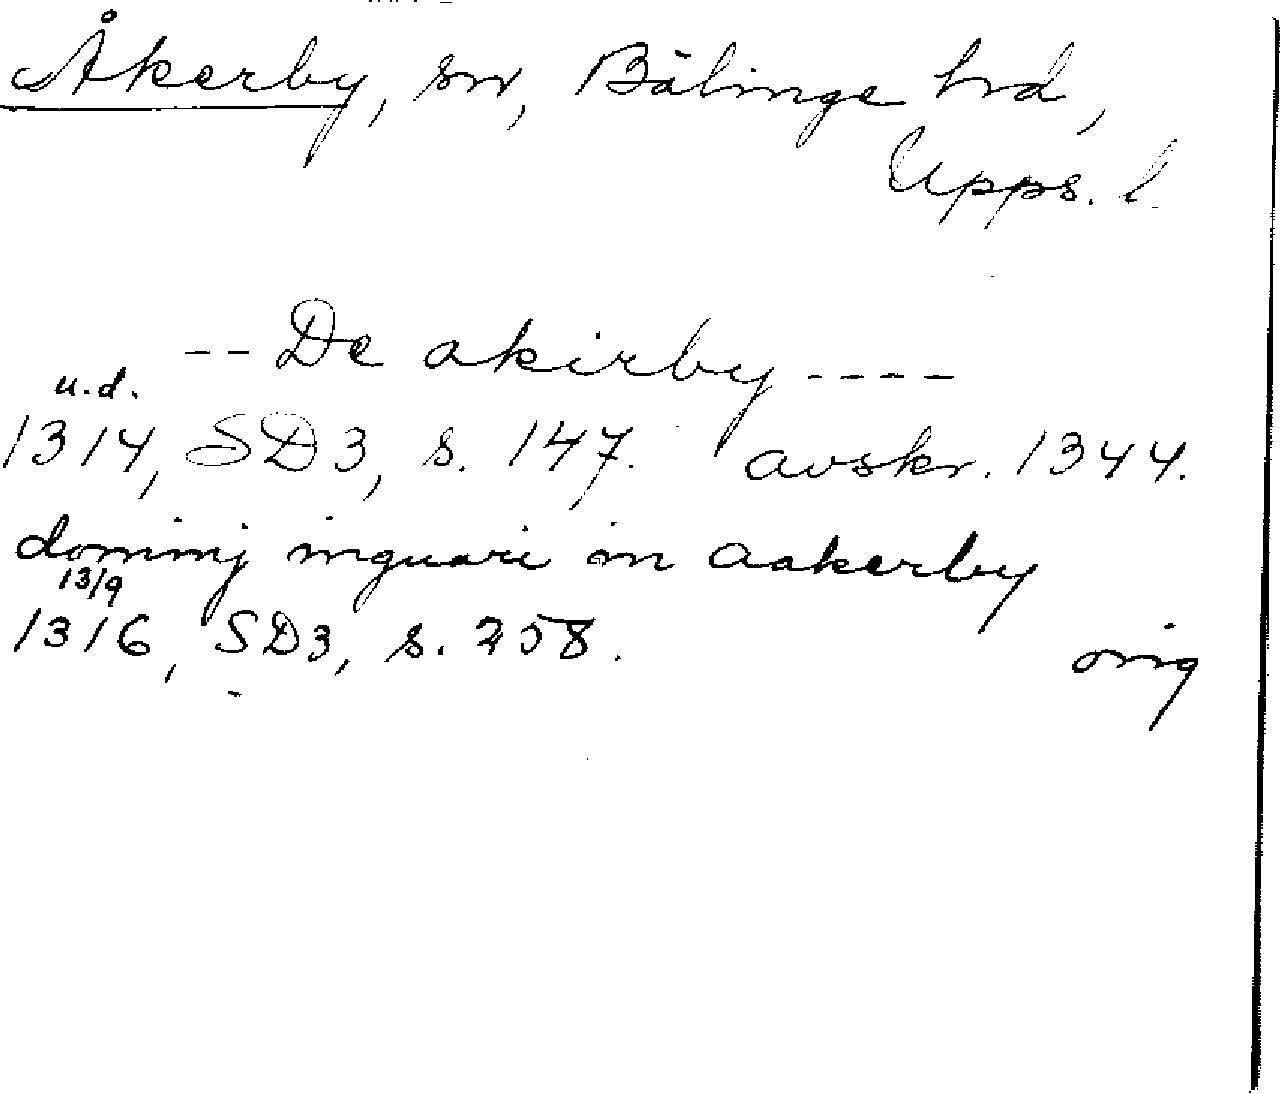 Åkerby, sn, Bälinge hd,
Upps. l.
-- De akirby ----
u.d.
1314, SD3, s. 147. avskr. 1344.
dominj inguari in aakerby
13/9
1316, SD3, s. 258. orig